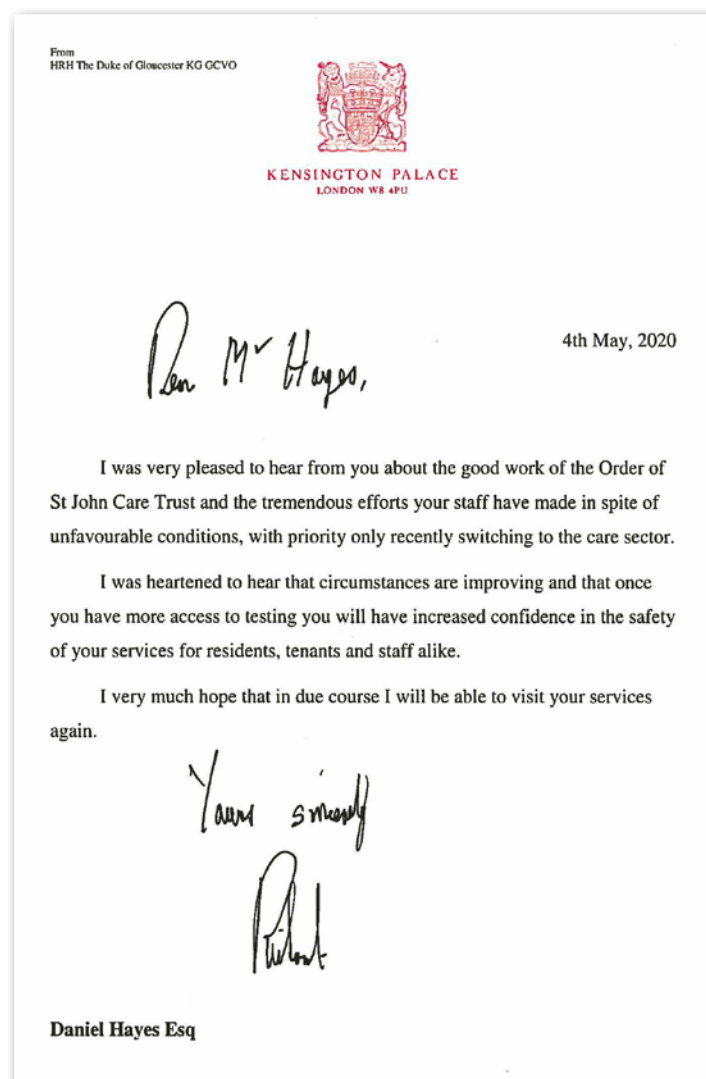 From
HRH The Duke of Gloucester KG GCVO
KENSINGTON PALACE
LONDON W8 4PU
4th May, 2020
Dear Mr Hayes,
I was very pleased to hear from you about the good work of the Order of
St John Care Trust and the tremendous efforts your staff have made in spite of
unfavourable conditions, with priority only recently switching to the care sector.
I was heartened to hear that circumstances are improving and that once
you have more access to testing you will have increased confidence in the safety
of your services for residents, tenants and staff alike.
I very much hope that in due course I will be able to visit your services
again.
Yours sincerely
Richard
Daniel Hayes Esq